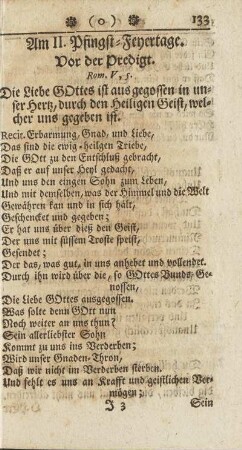 ( o ) 133
Am II. Pfingst-Feyertage.
Vor der Predigt.
Rom. V, 5.
Die Liebe GOttes ist aus gegossen in un-
ser Hertz, durch den Heiligen Geist, wel-
cher uns gegeben ist.
Recit. Erbarmung, Gnad, und Liebe,
Das sind die ewig-heilgen Triebe,
Die GOtt zu den Entschluß gebracht,
Daß er auf unser Heyl gedacht,
Und uns den eingen Sohn zum Leben,
Und mit demselben, was der Himmel und die Welt
Gewähren kan und in sich hält,
Geschencket und gegeben;
Er hat uns über dieß den Geist,
Der uns mit süssem Troste speist,
Gesendet;
Der das, was gut, in uns anhebt und vollendet.
Durch ihn wird über die, so GOttes Bunds-Ge-
nossen,
Die Liebe GOttes ausgegossen.
Was solte denn GOtt nun
Noch weiter an uns thun?
Sein allerliebster Sohn
Kommt zu uns ins Verderben;
Wird unser Gnaden-Thron,
Daß wir nicht im Verderben sterben.
Und fehlt es uns an Krafft und geistlichen Ver-
mögen;
J 3 Sein